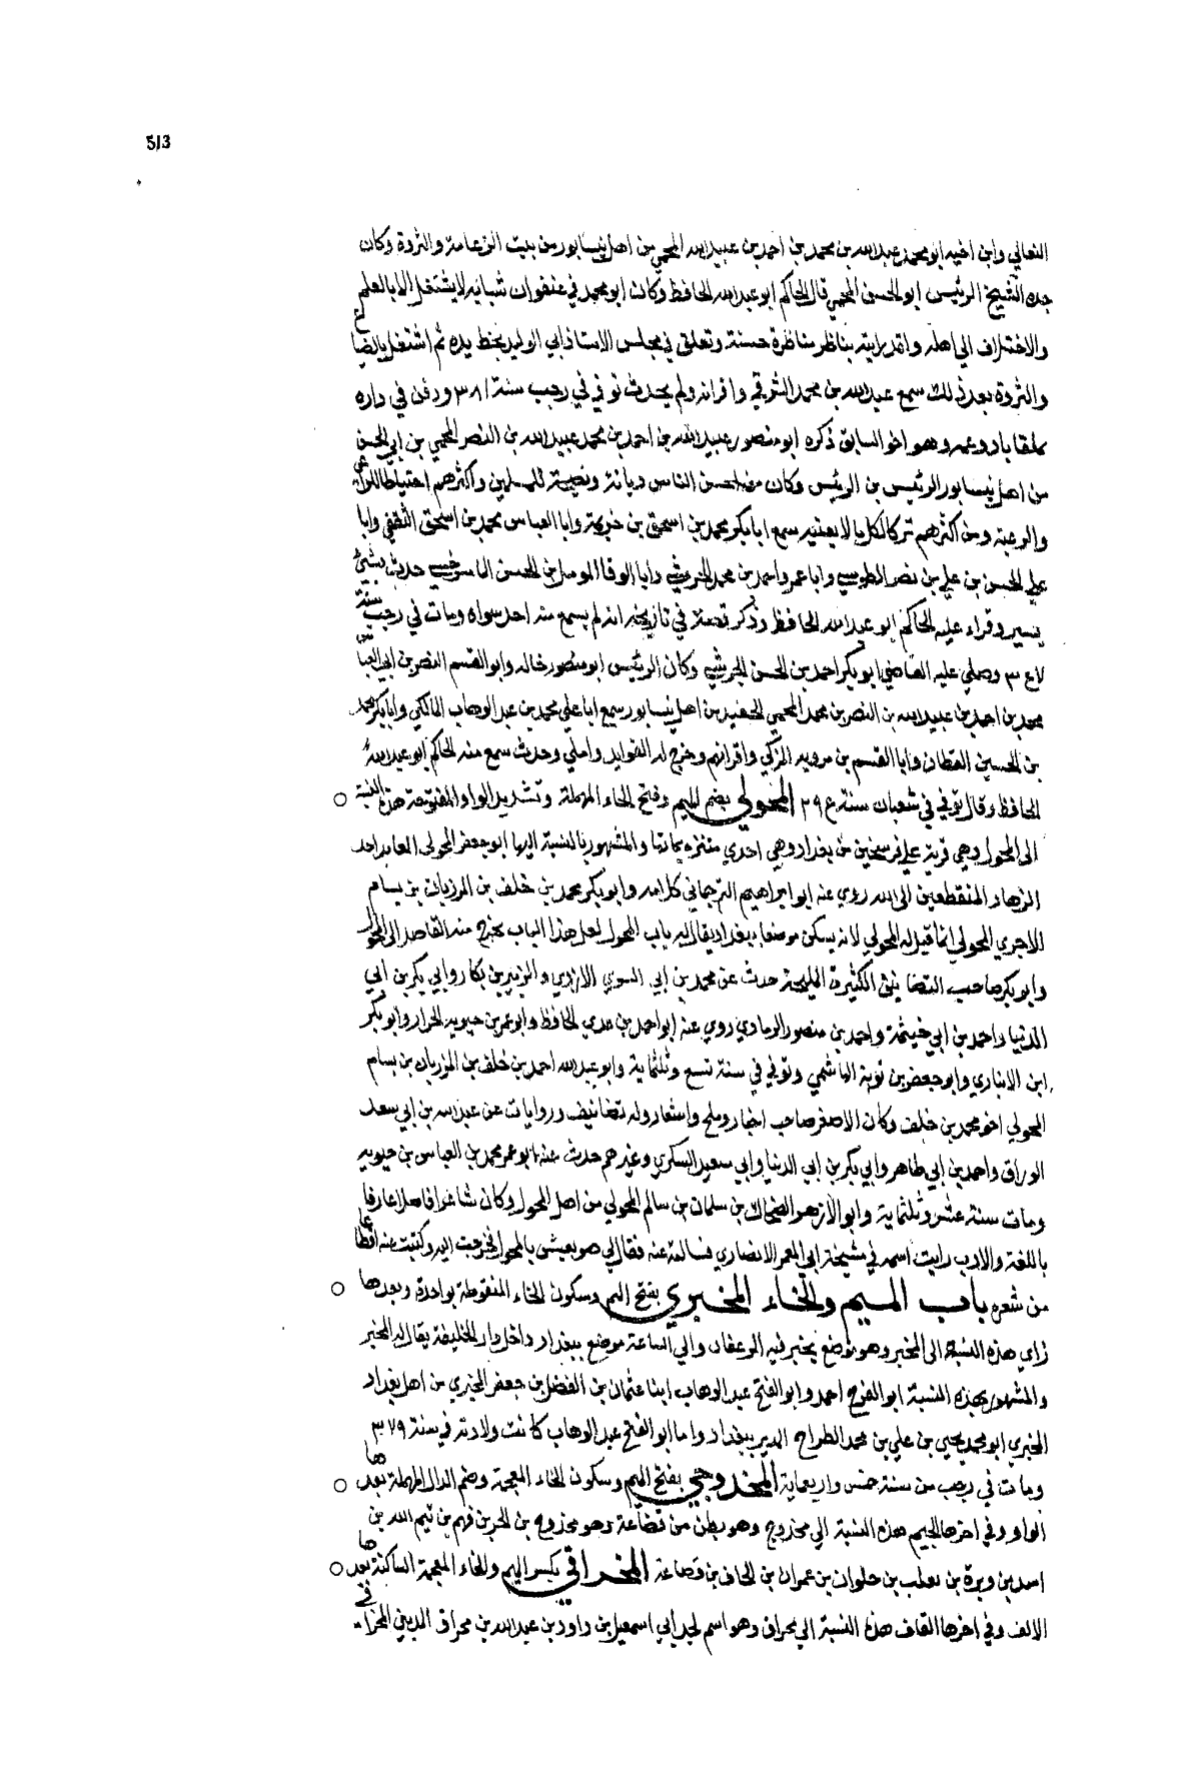 513
الثعالي وابن اخيه ابو محمد عبدالله بن محمد بن احمد بن عبيدالله المحمي من اهل نيسابور من بيت الزعامة والثروة وكان
جده الشيخ الرئيس ابو الحسن المحمي قال الحاكم ابو عبدالله الحافظ وكان ابو محمد في عنفوان شبابه لا يشتغل الا بالعلم
والاختلاف الى اهله ولقد رايته يناظر مناظرة حسنة وتعلق في مجلس الاستاذ ابي الوليد بخط يده ثم اشتغل بالضياع
والثروة بعد ذلك سمع عبدالله بن محمد الشرقي واقرانه ولم يحدث توفي في رجب سنة ٣٨١ ودفن في داره
بملقاباد وعمه وهو اخو السابق ذكره ابو منصور عبيدالله بن احمد بن محمد عبيدالله بن النصر المحمي بن ابي الحسن
من اهل نيسابور الرئيس بن الرئيس وكان من احسن الناس ديانة ونصيحة للمسلمين واكثرهم احتياطا للراعي
والرعية ومن اكثرهم تركا لكل ما لا يعنيه سمع ابا بكر محمد بن اسحق بن خزيمة وابا العباس محمد بن اسحق الثقفي وابا
علي الحسن بن علي بن نصر الطوسي وابا عمرو احمد بن محمد الحرشي وابا الوفا المومل بن الحسن الماسرخسي حدث بشيء
يسير وقراء عليه الحاكم ابو عبدالله الحافظ وذكر قصة في تاريخه انه لم يسمع منه احد سواه ومات في رجب سنة
وصلى عليه القاضي ابو بكر احمد بن الحسن الحرشي وكان الرئيس ابو منصور خاله وابو القسم النصر بن ابي العباس
محمد بن احمد بن عبيدالله بن النصر بن محمد المحمي الحفيد من اهل نيسابور سمع ابا علي محمد بن عبد الوهاب المالكي وابا بكر محمد
بن الحسين القطان وابا القسم بن مرويه المزكي واقرانهم وخرج له الفوايد واملي وحدث سمع منه الحاكم ابو عبدالله
الحافظ وقال توفي في شعبان سنة المحولي بضم الميم وفتح الحاء المهملة وتشديد الواو المفتوحة هذه النسبة
الى المحول وهي قرية على فرسخين من بغداد وهي احدي متنزهاتها والمشهور بالنسبة اليها ابو جعفر المحولى العابد احد
الزهاد المنقطعين الى الله روي عنه ابو ابراهيم الترجماني كلامه وابو بكر محمد بن خلف بن المرزبان بن بسام
الاجري المحولي انما قيل له المحولي لانه يسكن موضعا ببغداد يقال له باب المحول لعل هذا الباب يخرج منه القاصد الى المحول
وابو بكر صاحب التصانيف الكثيرة المليحة حدث عن محمد بن ابي السوي الازدي والزبير بن بكار وابي بكر بن ابي
الدنيا واحمد بن ابي خيثمة واحمد بن منصور الرمادي روي عنه ابو احمد بن عدي الحافظ وابو عمر بن حيويه الخزاز وابو بكر
ابن الانباري وابو جعفر بن توبة الهاشمي وتوفي في سنة تسع وثلثماية وابو عبدالله احمد بن خلف بن المرزبان بن بسام
المحولي اخو محمد بن خلف وكان الاصغر صاحب اخبار وملح واشعار وله تصانيف وروايات عن عبدالله بن ابي سعد
الوراق واحمد بن ابي طاهر وابي بكر بن ابي الدنيا وابي سعيد السكري وغيرهم حدث عنه ابو عمر محمد بن العباس بن حيويه
ومات سنة عشر وثلثماية وابو الازهر الضحاك بن سلمان بن سالم المحولي من اهل المحول وكان شاعرا فاضلا عارفا
باللغة والادب رايت اسمه في مشيخة ابي المعمر الانصاري فسالته عنه فقال لي هو يعيش بالمحول فخرجت اليه وكتبت عنه اقطاعا
من شعره باب الميم والخاء المخبزي بفتح الميم وسكون الخاء المنقوطة بواحدة وبعدها
زاي هذه النسبة الى المخبز وهو موضع يخبز فيه الرغفان والي الساعة موضع ببغداد داخل دار الخليفة يقال له المخبز
والمشهور بهذه النسبة ابو الفرج احمد وابو الفتح عبد الوهاب ابنا عثمان بن الفضل بن جعفر المخبزي من اهل بغداد
المخبزي ابو محمد يحيي بن علي بن محمد الطراح المدير ببغداد واما ابو الفتح عبد الوهاب كانت ولادته في سنة ٣٧٩
ومات في رجب من سنة خمس واربعماية المخدوجي بفتح الميم وسكون الخاء المعجمة وضم الدال المهملة بعدها
الواو وفي اخرها الجيم هذه النسبة الي مخدوج وهو بطن من قضاعة وهو مخدوج بن الحر بن فهم بن تيم الله بن
اسد بن وبرة بن تغلب بن حلوان بن عمران بن الحاف بن قضاعة المخراقي بكسر الميم والخاء المعجمة الساكنة بعدها
الالف وفي اخرها القاف هذه النسبة الي مخراق وهو اسم لجد ابي اسمعيل بن داود بن عبدالله بن مخراق المديني المخراقي